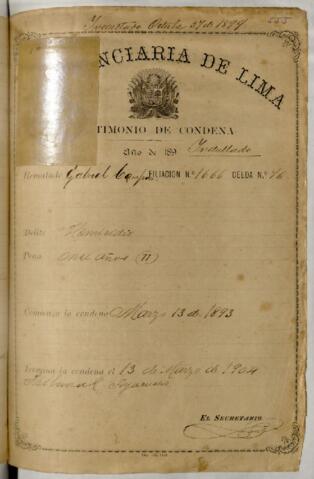 Indultado Octubre 27 de 1899
555
NCIARIA DE LIMA
TIMONIO DE CONDENA
Año de 189 Indultado
Rematado Gabriel Campos FILIACION N.º 1666 CELDA N.º 76
Delito Homicidio
Pena once años (11)
Comienza la condena Marzo 13 de 1893
Termina la condena el 13 de Marzo de 1904
Tribunal Ayacucho
EL SECRETARIO